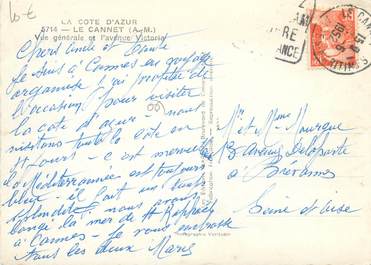 10 €
LA COTE D'AZUR
5714 - LE CANNET (A.-M.)
Vue générale et l'avenue Victoria
Chers Oncle et Tante
Je suis à Cannes en voyage
organisé et j'ai profité de
l'occasion pour visiter
la côte d'azur - nous
visitons toute la côte en
8 jours - c'est merveilleux
la Méditerranée est toujours
bleue - il fait un temps
splendide nous avons
longé la mer de St Raphaël
à Cannes - Je vous embrasse
tous les deux Marie
LE CANNET
Mr et Mme Mourgue
3 Avenue Delaporte
à Brévannes
Seine et Oise